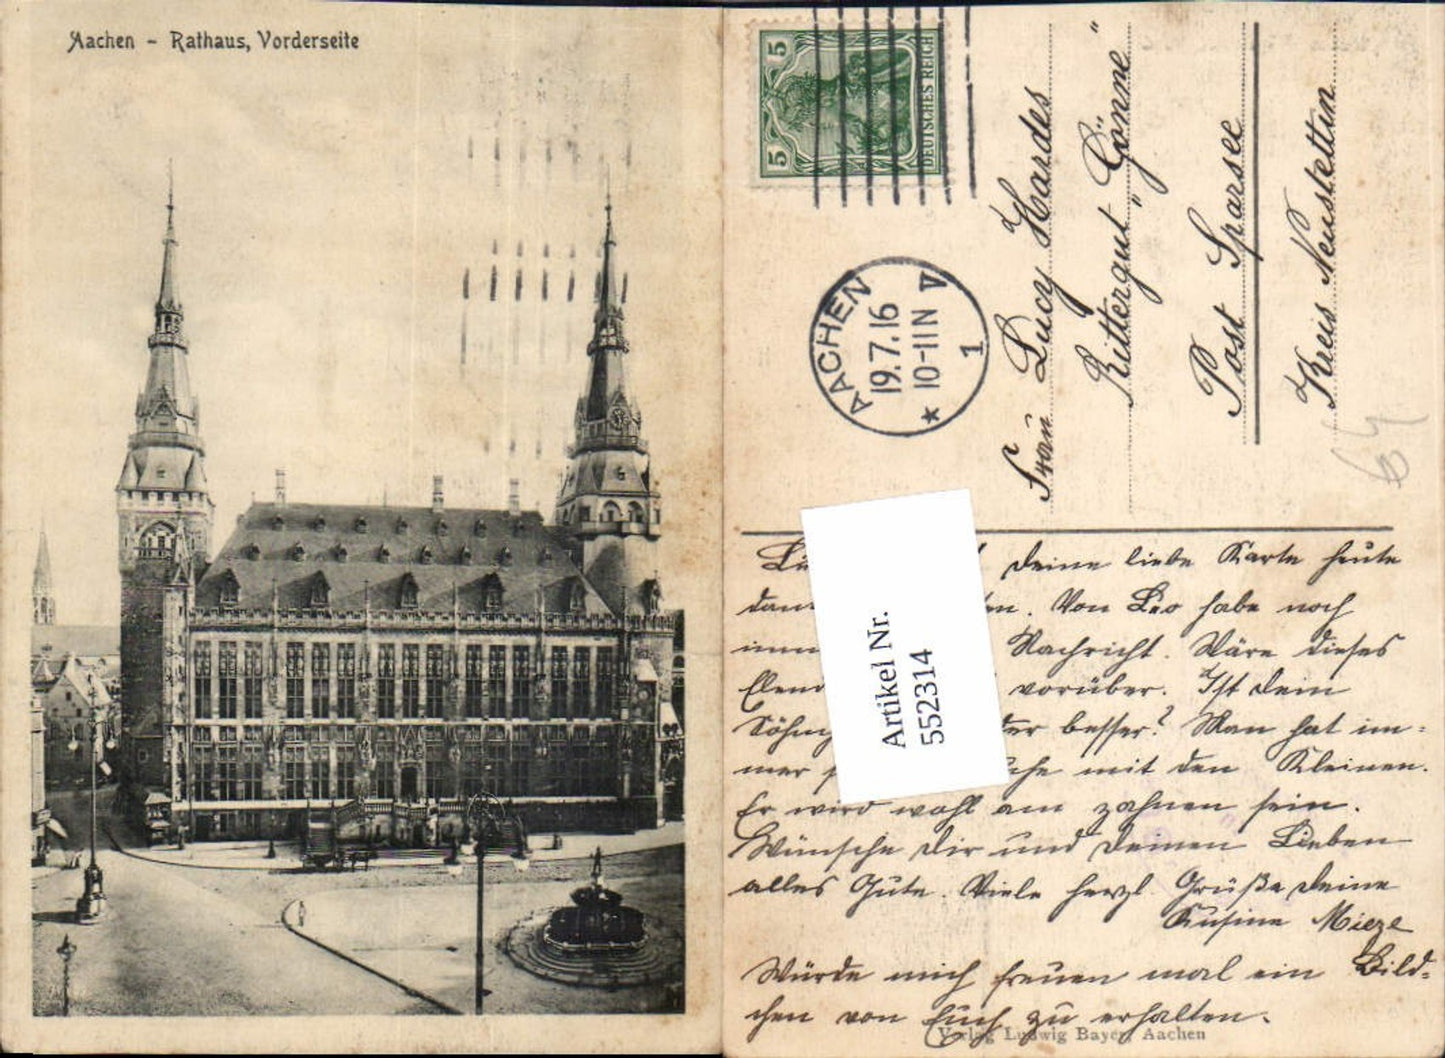 Aachen - Rathaus, Vorderseite
5 5
DEUTSCHES REICH
AACHEN
19.7.16
10-11 N V
* 1
Frau Lucy Hardes
Rittergut „Gönne"
Post Sparsee
Kreis Neustettin
64
Artikel Nr.
552314
deine liebe Karte heute
Von Leo habe noch
Nachricht. Wäre dieses
vorüber. Ist dein
besser? Man hat im-
mer mit den Kleinen.
Er wird wohl am zahnen sein.
Wünsche dir und deinen Lieben
alles Gute. Viele herzl. Grüße deine
Kusine Mieze
Würde mich freuen mal ein Bild-
chen von Euch zu erhalten.
Verlag Ludwig Bayer, Aachen